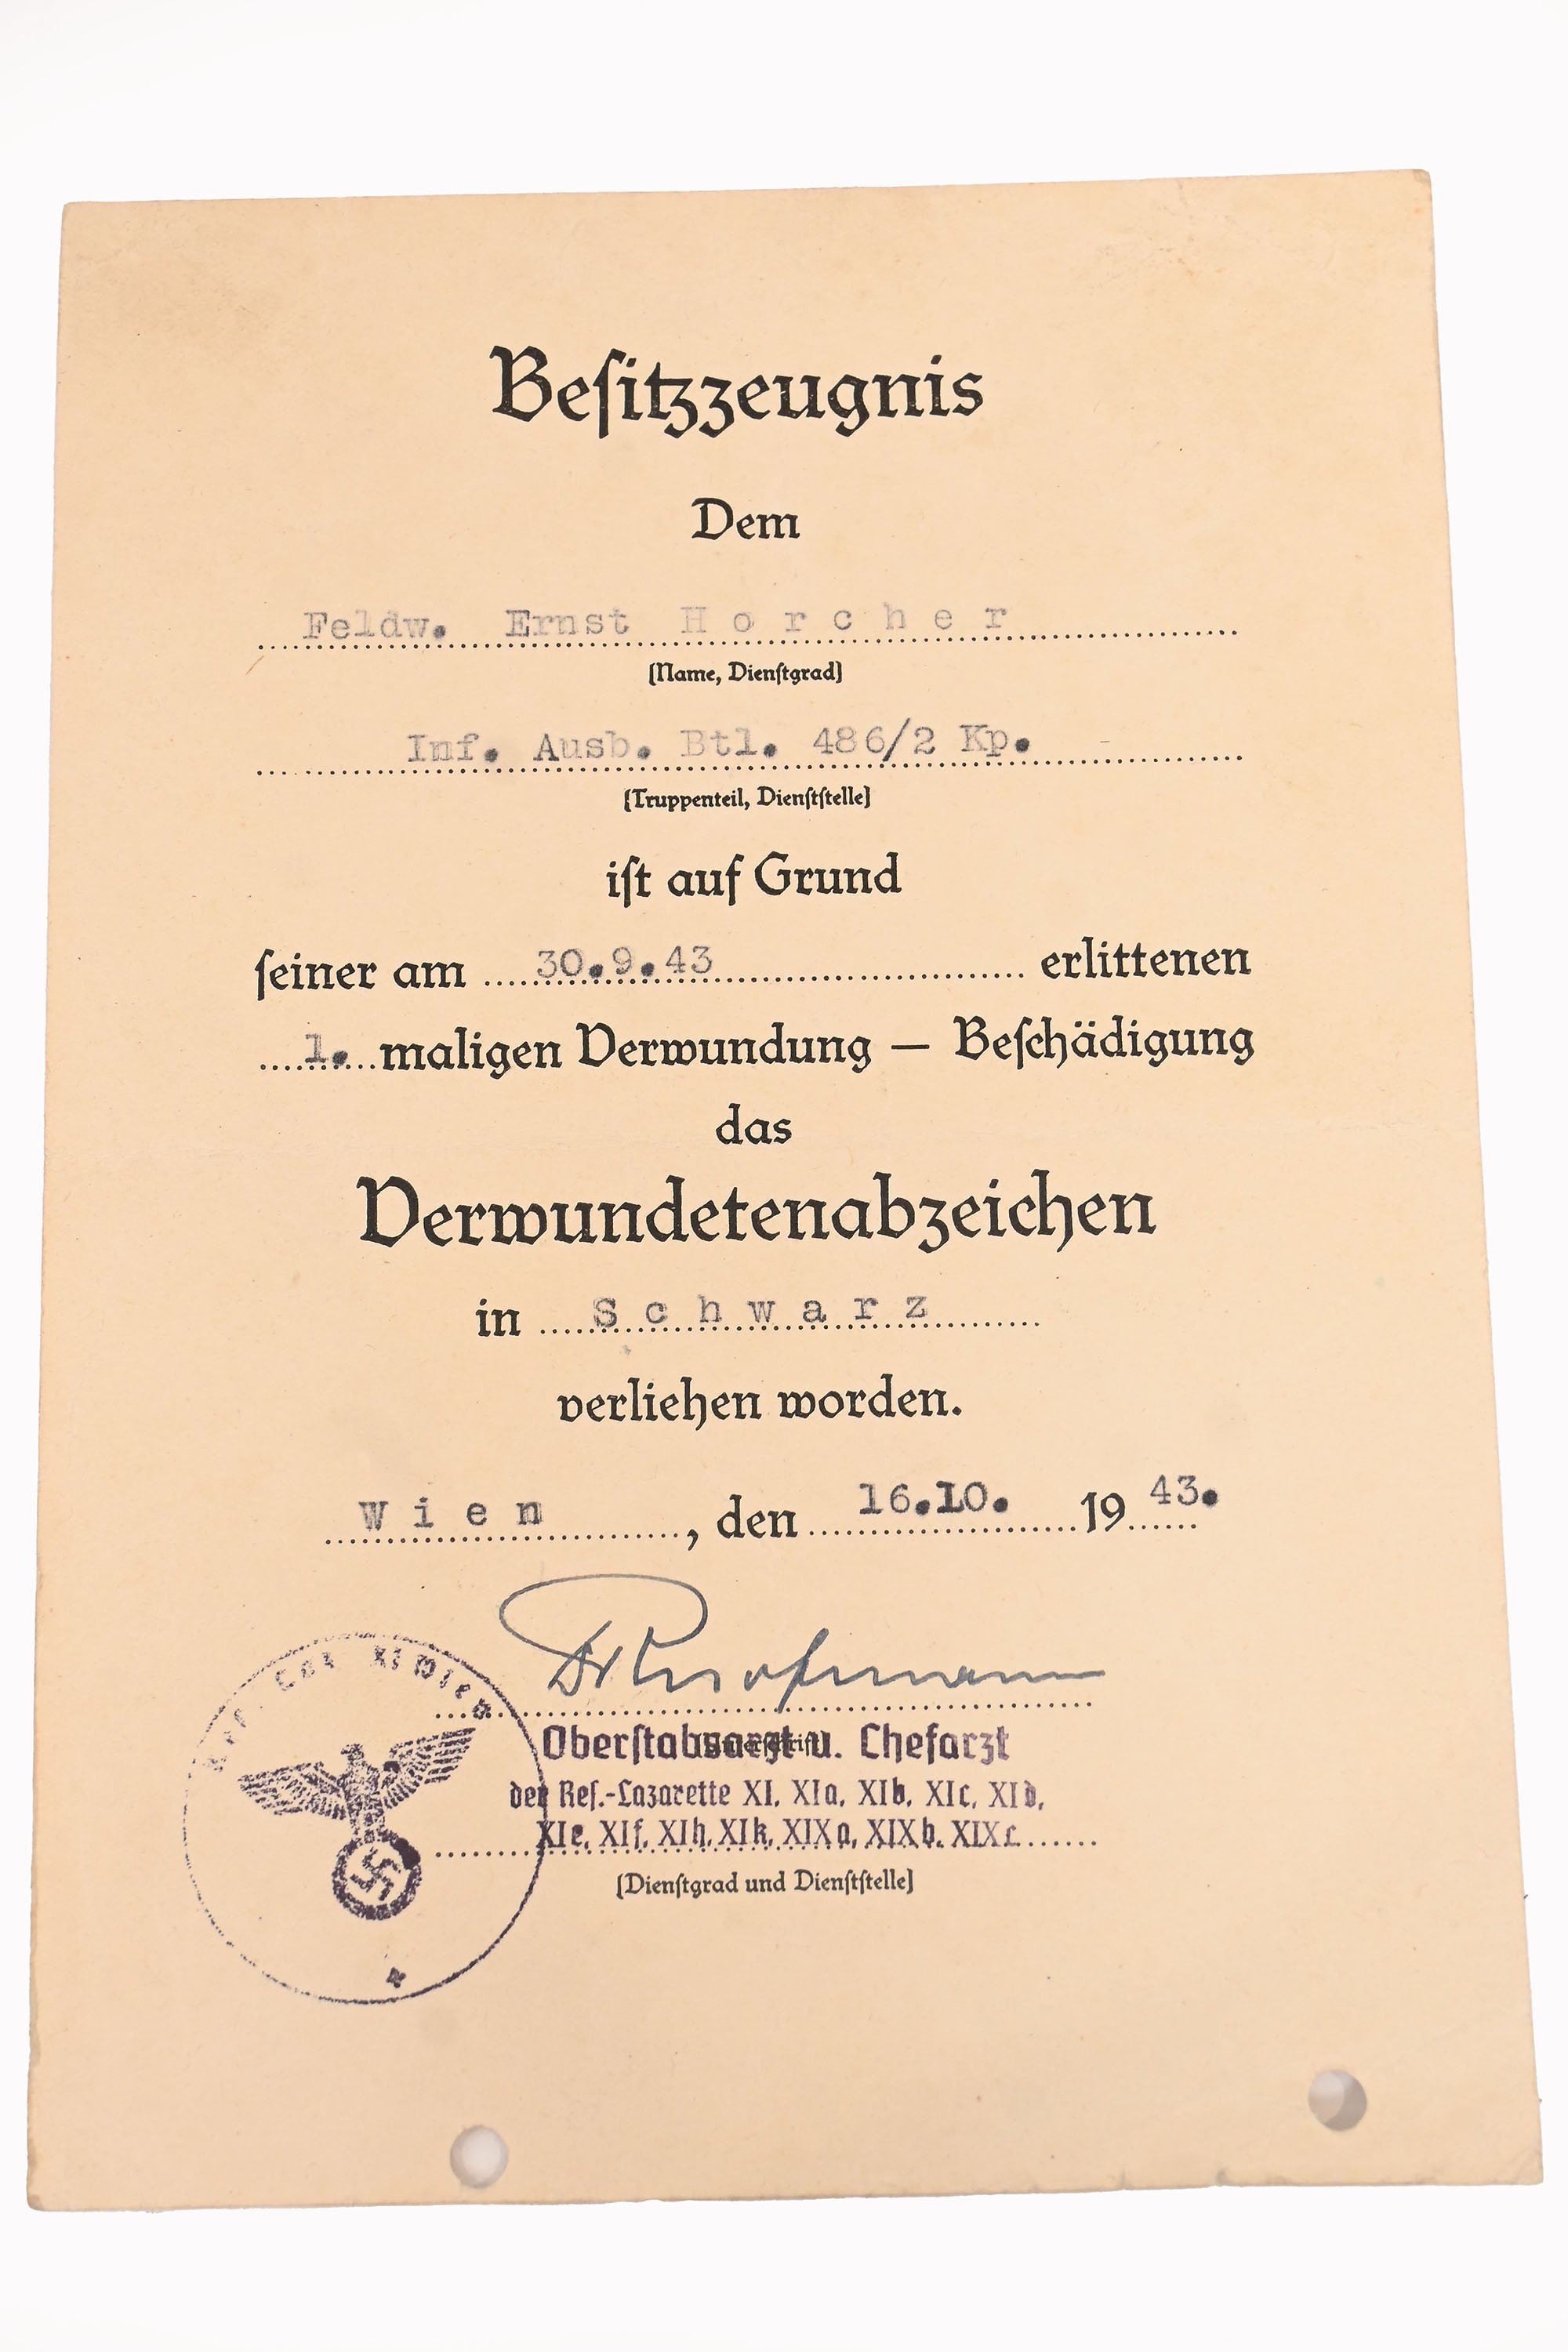 Besitzzeugnis
Dem
Feldw. Ernst Horcher
(Name, Dienstgrad)
Inf. Ausb. Btl. 486/2 Kp.
(Truppenteil, Dienststelle)
ist auf Grund
seiner am 30.9.43 erlittenen
1. maligen Verwundung – Beschädigung
das
Verwundetenabzeichen
in Schwarz
verliehen worden.
Wien, den 16.10. 1943.
Res. Laz. XI Wien
Oberstabsarzt u. Chefarzt
der Res.-Lazarette XI, XIa, XIb, XIc, XId,
XIe, XIf, XIh, XIk, XIXa, XIXb, XIXc
(Dienstgrad und Dienststelle)